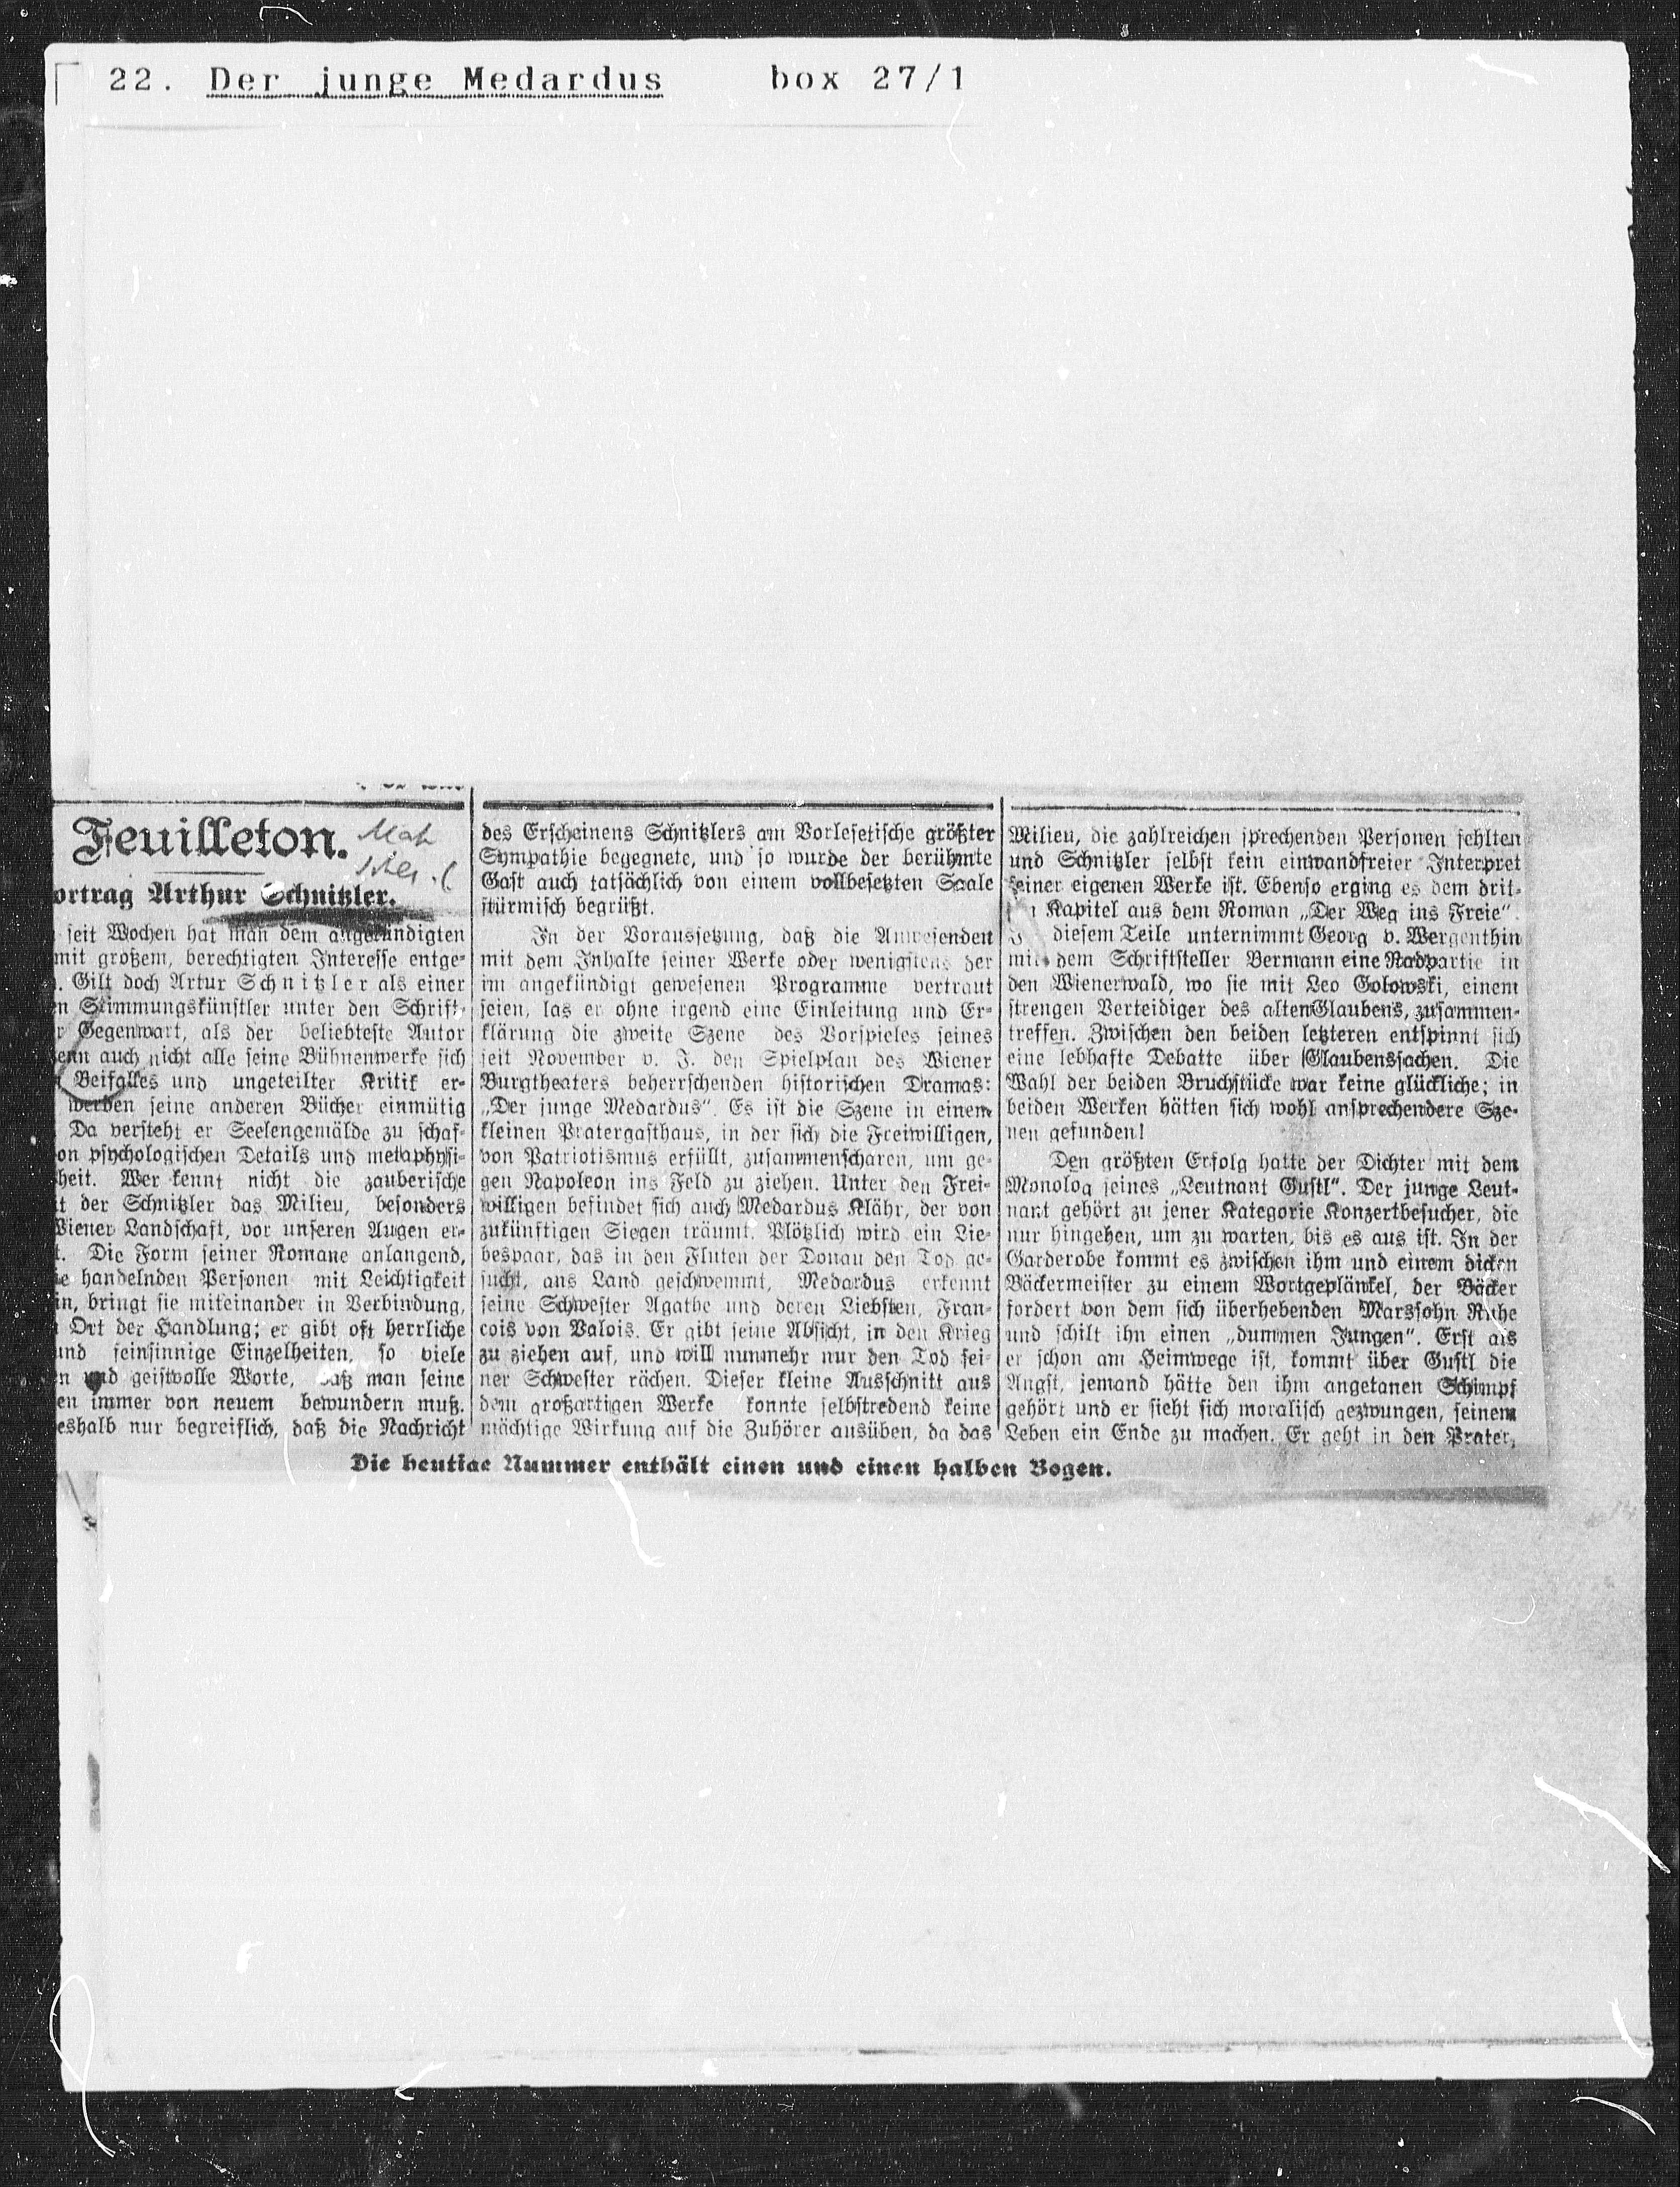 22. Der junge Medardus box 27/1
Feuilleton.
ortrag Arthur Schnitzler.
seit Wochen hat man dem angekündigten
mit großem, berechtigten Interesse entge-
. Gilt doch Artur Schnitzler als einer
en Stimmungskünstler unter den Schrift-
r Gegenwart, als der beliebteste Autor
enn auch nicht alle seine Bühnenwerke sich
Beifalles und ungeteilter Kritik er-
werden seine anderen Bücher einmütig
Da versteht er Seelengemälde zu schaf-
on psychologischen Details und metaphysi-
heit. Wer kennt nicht die zauberische
t der Schnitzler das Milieu, besonders
Wiener Landschaft, vor unseren Augen er-
t. Die Form seiner Romane anlangend,
ie handelnden Personen mit Leichtigkeit
in, bringt sie miteinander in Verbindung,
Ort der Handlung; er gibt oft herrliche
und feinsinnige Einzelheiten, so viele
en und geistvolle Worte, daß man seine
en immer von neuem bewundern muß.
eshalb nur begreiflich, daß die Nachricht
des Erscheinens Schnitzlers am Vorlesetische größter
Sympathie begegnete, und so wurde der berühmte
Gast auch tatsächlich von einem vollbesetzten Saale
stürmisch begrüßt.
In der Voraussetzung, daß die Anwesenden
mit dem Inhalte seiner Werke oder wenigstens der
im angekündigt gewesenen Programme vertraut
seien, las er ohne irgend eine Einleitung und Er-
klärung die zweite Szene des Vorspieles seines
seit November v. J. den Spielplan des Wiener
Burgtheaters beherrschenden historischen Dramas:
„Der junge Medardus“. Es ist die Szene in einem
kleinen Pratergasthaus, in der sich die Freiwilligen,
von Patriotismus erfüllt, zusammenscharen, um ge-
gen Napoleon ins Feld zu ziehen. Unter den Frei-
willigen befindet sich auch Medardus Klähr, der von
zukünftigen Siegen träumt. Plötzlich wird ein Lie-
bespaar, das in den Fluten der Donau den Tod ge-
sucht, ans Land geschwemmt, Medardus erkennt
seine Schwester Agathe und deren Liebsten, Fran-
cois von Valois. Er gibt seine Absicht, in den Krieg
zu ziehen auf, und will nunmehr nur den Tod sei-
ner Schwester rächen. Dieser kleine Ausschnitt aus
dem großartigen Werke konnte selbstredend keine
mächtige Wirkung auf die Zuhörer ausüben, da das
Milieu, die zahlreichen sprechenden Personen fehlten
und Schnitzler selbst kein einwandfreier Interpret
seiner eigenen Werke ist. Ebenso erging es dem drit-
Kapitel aus dem Roman „Der Weg ins Freie“.
diesem Teile unternimmt Georg v. Wergenthin
mit dem Schriftsteller Bermann eine Radpartie in
den Wienerwald, wo sie mit Leo Golowski, einem
strengen Verteidiger des alten Glaubens, zusammen-
treffen. Zwischen den beiden letzteren entspinnt sich
eine lebhafte Debatte über Glaubenssachen. Die
Wahl der beiden Bruchstücke war keine glückliche; in
beiden Werken hätten sich wohl ansprechendere Sze-
nen gefunden!
Den größten Erfolg hatte der Dichter mit dem
Monolog seines „Leutnant Gustl“. Der junge Leut-
nant gehört zu jener Kategorie Konzertbesucher, die
nur hingehen, um zu warten, bis es aus ist. In der
Garderobe kommt es zwischen ihm und einem dicken
Bäckermeister zu einem Wortgeplänkel, der Bäcker
fordert von dem sich überhebenden Marssohn Ruhe
und schilt ihn einen „dummen Jungen“. Erst als
er schon am Heimwege ist, kommt über Gustl die
Angst, jemand hätte den ihm angetanen Schimpf
gehört und er sieht sich moralisch gezwungen, seinem
Leben ein Ende zu machen. Er geht in den Prater,
Die heutige Nummer enthält einen und einen halben Bogen.